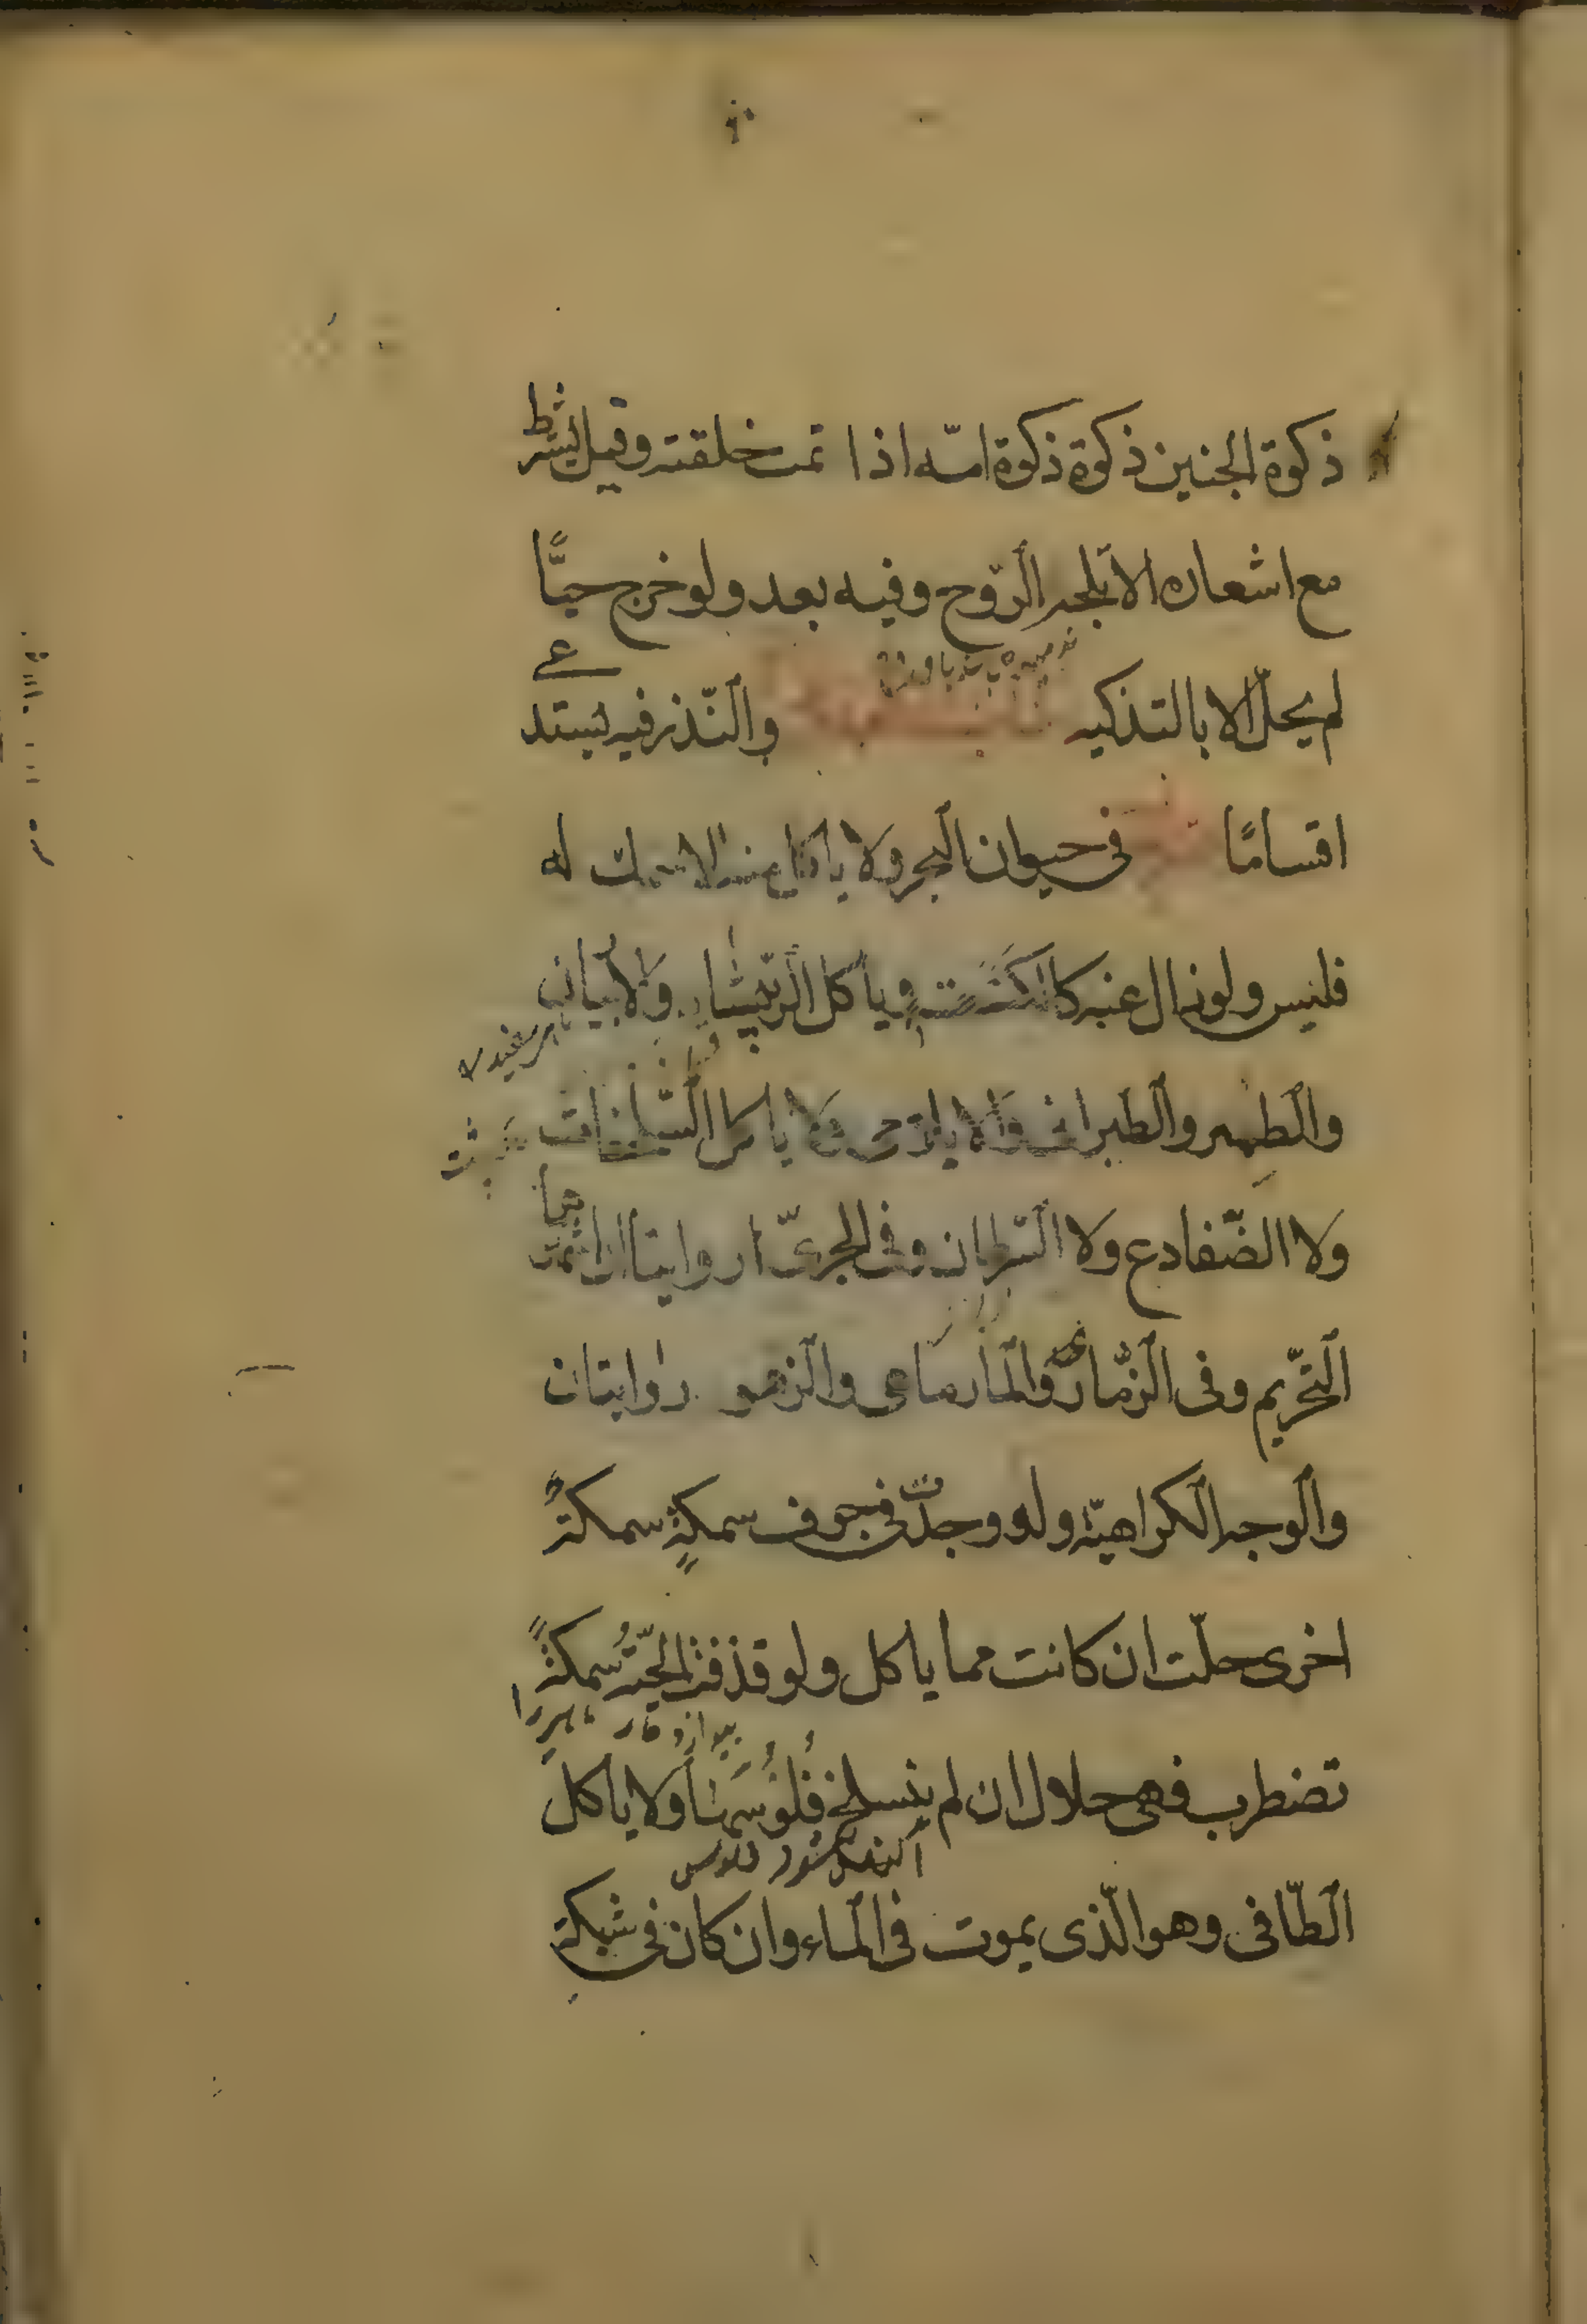 ذكوة الجنين ذكوة ذكوة امّه اذا تمت خلقته وقيل يشترط
مع اشعاره الا تلجه الرّوح وفيه بعد ولو خرج حيًّا
لم يحلّ الا بالتذكيه والنّظر فيه يستدعى
اقسامًا فى حيوان البحر ولا ياكل منه الا سمك له
فليس ولو زال عنه كالكنعت ويأكل الرّبيثا والاربيان
والطمر والطبرانى والابلامى ولا ياكل السّلحفات
ولا الضّفادع ولا السّرطان وفى الجرىّ روايتان اشهرهما
التحّريم وفى الزّمّار والمارماهى والزهو روايتان
والوجه الكراهيّة ولو وجدت فى جوف سمكةٍ سمكةً
اخرى حلّت ان كانت مما ياكل ولو قذفت الحيّة سمكةً
تضطرب فهى حلال ان لم ينسلخ فلوسها ولا ياكل
الطّافى وهو الّذى يموت فى الماء وان كان فى شبكة